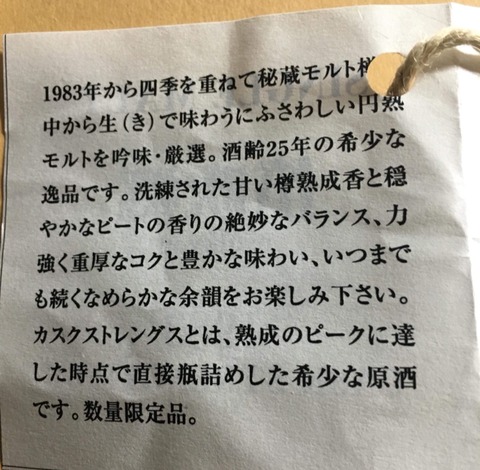 1983年から四季を重ねて秘蔵モルト樽
中から生（き）で味わうにふさわしい円熟
モルトを吟味・厳選。酒齢25年の希少な
逸品です。洗練された甘い樽熟成香と穏
やかなピートの香りの絶妙なバランス、力
強く重厚なコクと豊かな味わい、いつまで
も続くなめらかな余韻をお楽しみ下さい。
カスクストレングスとは、熟成のピークに達
した時点で直接瓶詰めした希少な原酒
です。数量限定品。